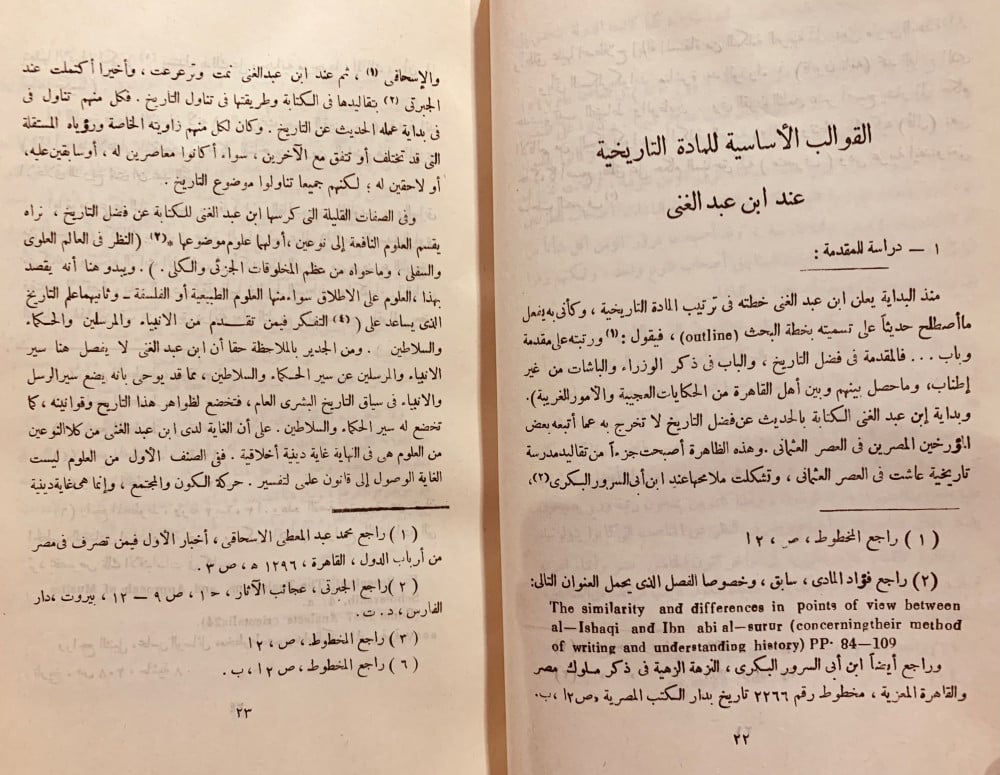 القوالب الأساسية للمادة التاريخية
عند ابن عبد الغنى
١ — دراسة للمقدمة :
منذ البداية يعلن ابن عبد الغنى خطته فى ترتيب المادة التاريخية ، وكأنى به يفعل
ماأصطلح حديثاً على تسميته بخطة البحث (outline) ، فيقول : (١) ورتبته على مقدمة
وباب ... فالمقدمة فى فضل التاريخ ، والباب فى ذكر الوزراء والباشات من غير
إطناب، وماحصل بينهم وبين أهل القاهرة من الحكايات العجيبة والأمور الغريبة).
وبداية إبن عبد الغنى الكتابة بالحديث عن فضل التاريخ لا تخرج به عما أتبعه بعض
المؤرخين المصرين فى العصر العثمانى . وهذه الظاهرة أصبحت جزءاً من تقاليد مدرسة
تاريخية عاشت فى العصر العثمانى ، وتشكلت ملامحها عند ابن أبى السرور البكرى (٢)،
(١) راجع المخطوط ، ص ، ١٢
(٢) راجع فؤاد المادى ، سابق ، وخصوصا الفصل الذى يحمل العنوان التالى:
The similarity and differences in points of view between
al—Ishaqi and Ibn abi al—surur (concerningtheir method
of writing and understanding history) PP· 84—109
وراجع أيضاً ابن أبى السرور البكرى ، النزهة الزهية فى ذكر ملوك مصر
والقاهرة المعزية ، مخطوط رقم ٢٢٦٦ تاريخ بدار الكتب المصرية وص ١٢ ، ب.
٢٢
والإسحاقى (١) ، ثم عند ابن عبدالغنى نمت وترعرعت ، وأخيرا أكتملت عند
الجبرتى (٢) بتقاليدها فى الكتابة وطريقتها فى تناول التاريخ . فكل منهم تناول فى
فى بداية عمله الحديث عن التاريخ . وكان لكل منهم زاويته الخاصة ورؤياه المستقلة
التى قد تختلف أو تتفق مع الآخرين ، سواء أكانوا معاصرين له ، أوسابقين عليه،
أو لاحقين له ؛ لكنهم جميعا تناولوا موضوع التاريخ .
وفى الصفات القليلة التى كرسها ابن عبد الغنى للكتابة عن فضل التاريخ ، نراه
يقسم العلوم النافعة إلى نوعين ، أولهما علوم موضوعها «(٣) (النظر فى العالم العلوى
والسفلى ، وماحواه من عظم المخلوقات الجزئى والكلى . ) . ويبدو هنا أنه يقصد
بهذا ،العلوم على الاطلاق سواء منها العلوم الطبيعية أو الفلسفة ــ وثانيهما علم التاريخ
الذى يساعد على ( (٤) التفكر فيمن تقـــدم من الانبياء والمرسلين والحكماء
والسلاطين ) . ومن الجدير بالملاحظة حقا أن ابن عبد الغنى لا يفصل هنا سير
الانبياء والمرسلين عن سير الحكماء والسلاطين ، مما قد يوحى بانه يضع سير الرسل
والانبياء فى سياق التاريخ البشرى العام ، فتخضع لظواهر هذا التاريخ وقوانينه ، كما
تخضع له سير الحكماء والسلاطين . على أن الغاية لدى ابن عبد الغنى من كلا النوعين
من العلوم هى فى النهاية غاية دينية أخلاقية . ففى الصنف الأول من العلوم ليست
الغاية الوصول إلى قانون علمى لتفسير . حركة الكون والمجتمع ، وإنما هى غاية دينية
(١) راجع محمد عبد المعطى الاسحاقى ، أخبار الأول فيمن تصرف فى مصر
من أرباب الدول ، القاهرة ، ١٢٩٦ ه ، ص ٣ .
(٢) راجع الجبرتى ، عجائب الآثار ، ح ١ ، ص ٩ — ١٢ ، بيروت ، دار
الفارس ، د . ت .
(٣) راجع المخطوط ، ص ، ١٢
(٦) راجع المخطوط ، ص ، ١٢ ، ب .
٢٣